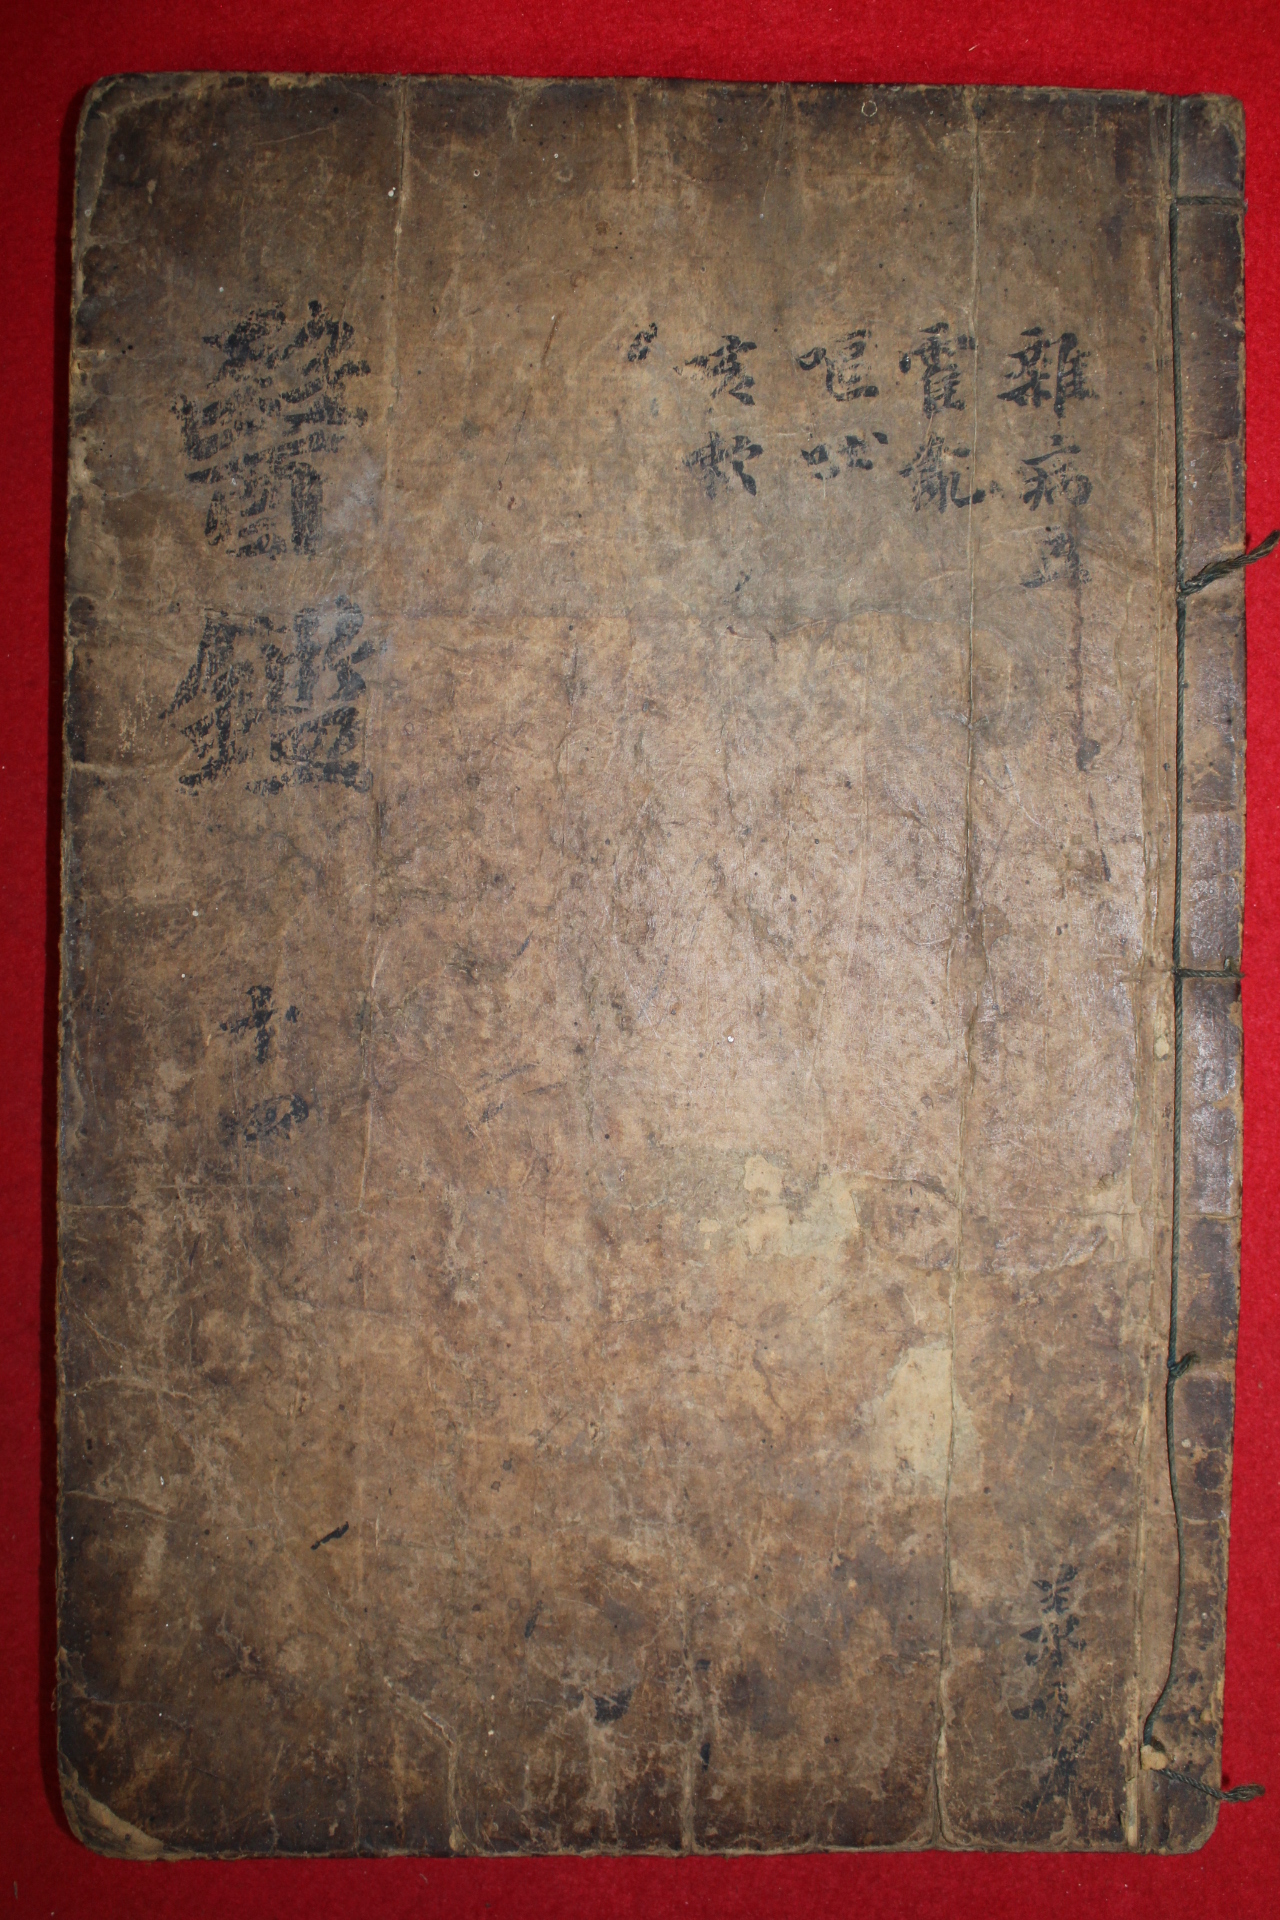 雜病五
霍亂
嘔吐
咳嗽
醫鑑
十四